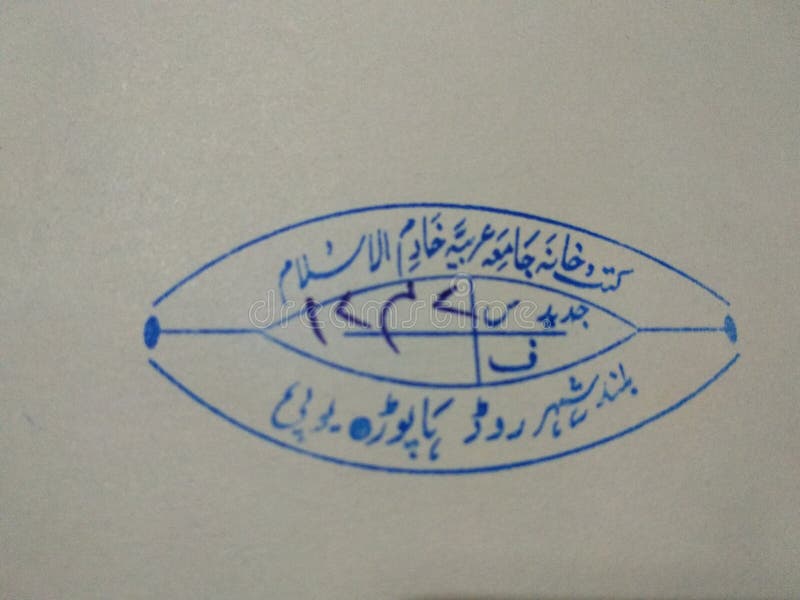 کتب خانہ جامعہ عربیَّہ خَادِم الاسلام
جدید س
ف
بلند شہر روڈ ہاپوڑ • یوپی
dreamstime